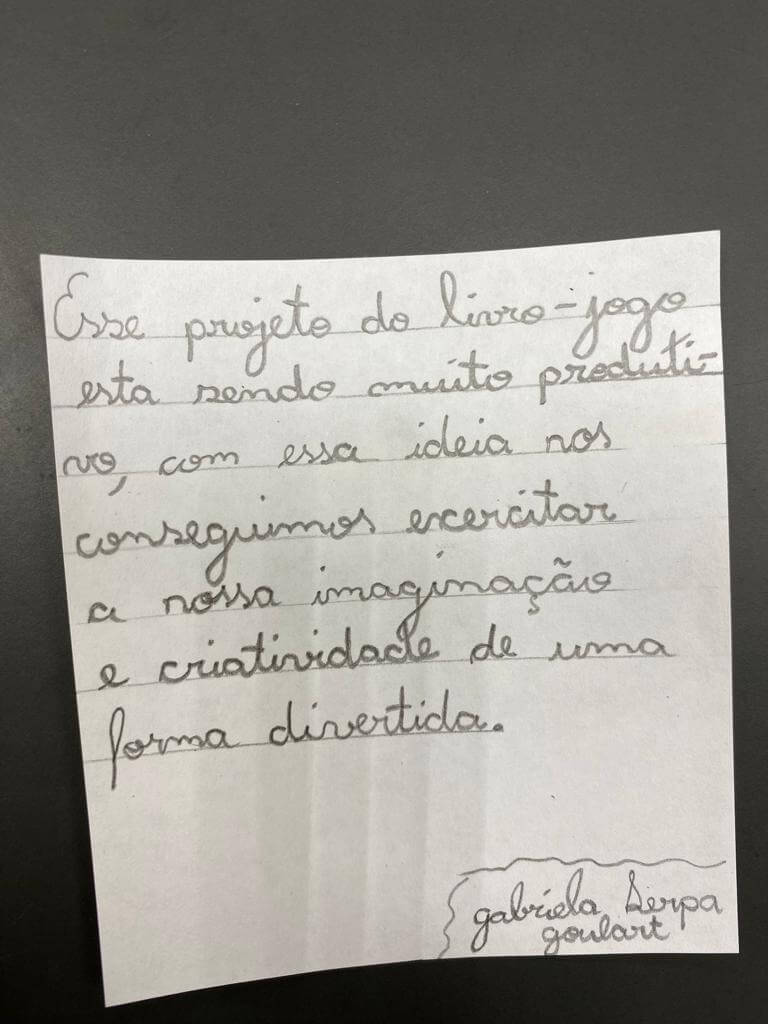 Esse projeto do livro-jogo
esta sendo muito produti-
vo, com essa ideia nos
conseguimos excercitar
a nossa imaginação
e criatividade de uma
forma divertida.
gabriela Serpa
goulart